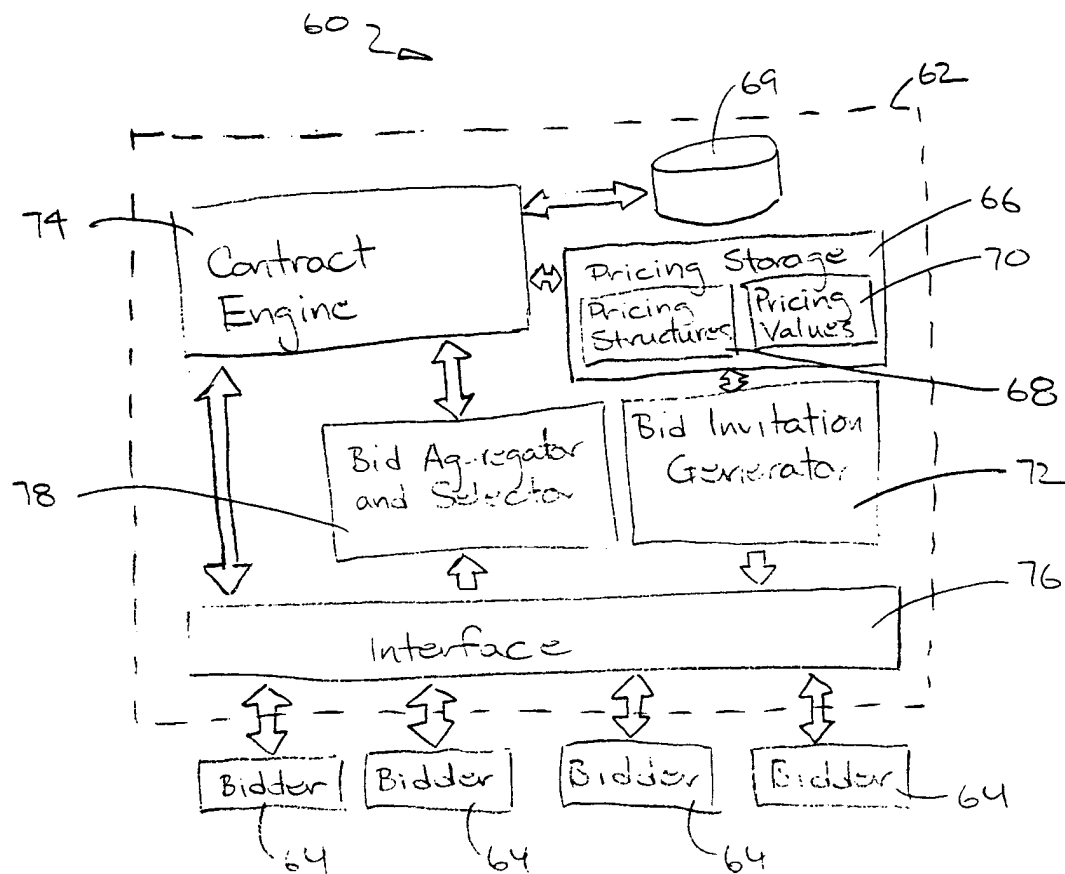 60
62
69
74
66
Contract
Engine
Pricing Storage
70
Pricing
Structures
Pricing
Values
68
Bid Aggregator
and Selector
Bid Invitation
Generator
78
72
76
Interface
Bidder
Bidder
Bidder
Bidder
64
64
64
64